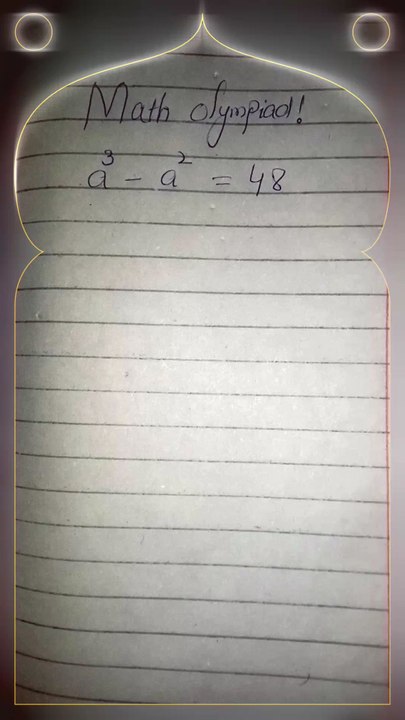 Math olympiad!
a³ - a² = 48